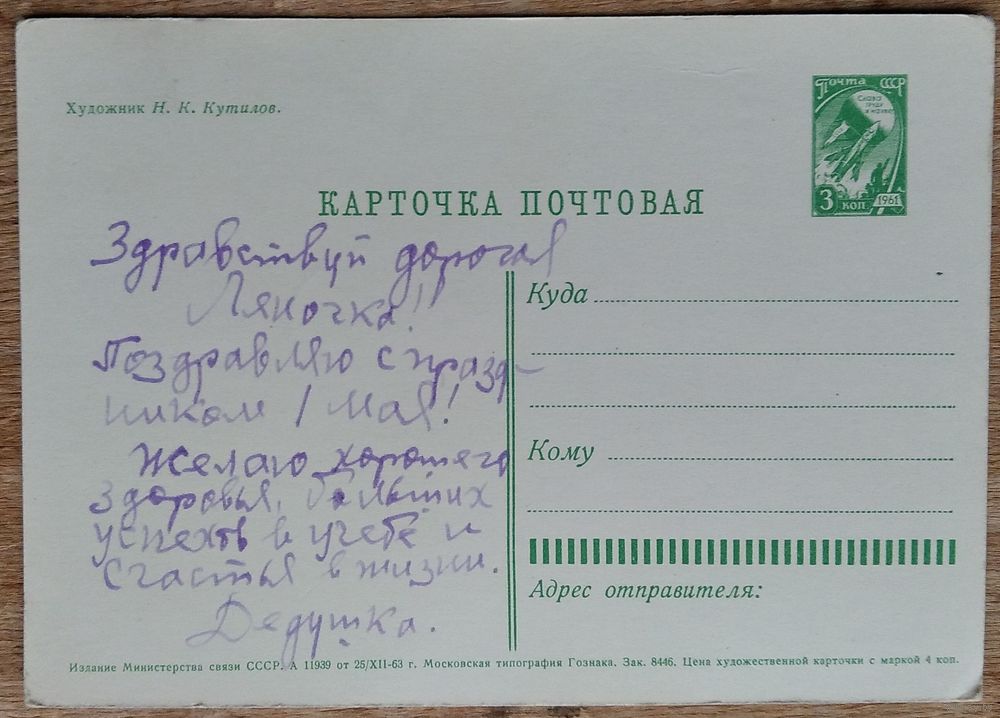 Художник Н. К. Кутилов.
Почта СССР
Слава
труду
и науке
3 коп 1961
КАРТОЧКА ПОЧТОВАЯ
Здравствуй дорогая
Ляночка!
Поздравляю с празд-
ником 1 мая!
Желаю хорошего
здоровья, больших
успехов в учебе и
счастья в жизни.
Дедушка.
Куда
Кому
Адрес отправителя:
Издание Министерства связи СССР. А 11939 от 25/XII-63 г. Московская типография Гознака. Зак. 8446. Цена художественной карточки с маркой 4 коп.